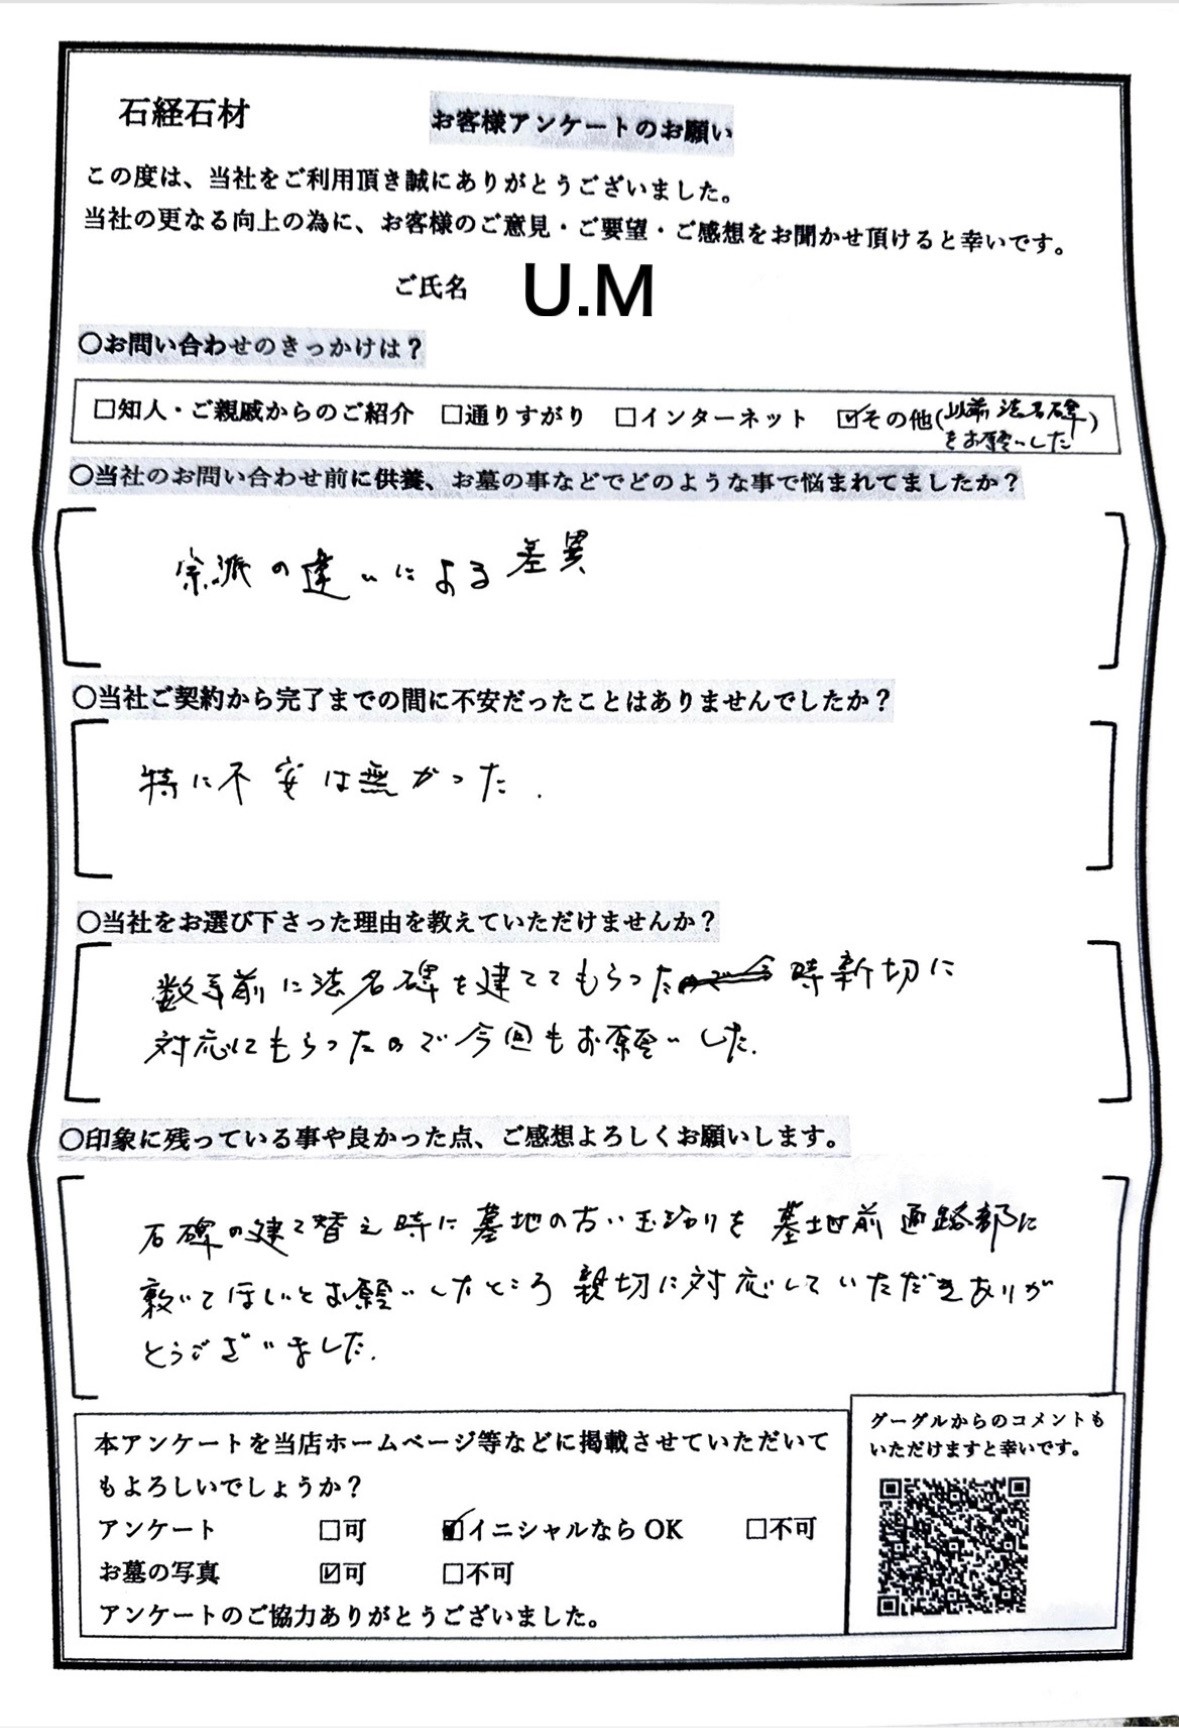 石経石材
お客様アンケートのお願い
この度は、当社をご利用頂き誠にありがとうございました。
当社の更なる向上の為に、お客様のご意見・ご要望・ご感想をお聞かせ頂けると幸いです。
ご氏名 U.M
○お問い合わせのきっかけは？
□知人・ご親戚からのご紹介 □通りすがり □インターネット ☑その他(以前法名碑
をお願いした)
○当社のお問い合わせ前に供養、お墓の事などでどのような事で悩まれてましたか？
宗派の違いによる差異
○当社ご契約から完了までの間に不安だったことはありませんでしたか？
特に不安は無かった.
○当社をお選び下さった理由を教えていただけませんか？
数年前に法名碑を建ててもらった 時 親切に
対応してもらったので今回もお願いした.
○印象に残っている事や良かった点、ご感想よろしくお願いします。
石碑の建て替え時に墓地の古い玉ジャリを墓地前通路部に
敷いてほしいとお願いしたところ親切に対応していただきありが
とうございました.
本アンケートを当店ホームページ等などに掲載させていただいて
もよろしいでしょうか？
アンケート □可 ☑イニシャルならOK □不可
お墓の写真 ☑可 □不可
アンケートのご協力ありがとうございました。
グーグルからのコメントも
いただけますと幸いです。